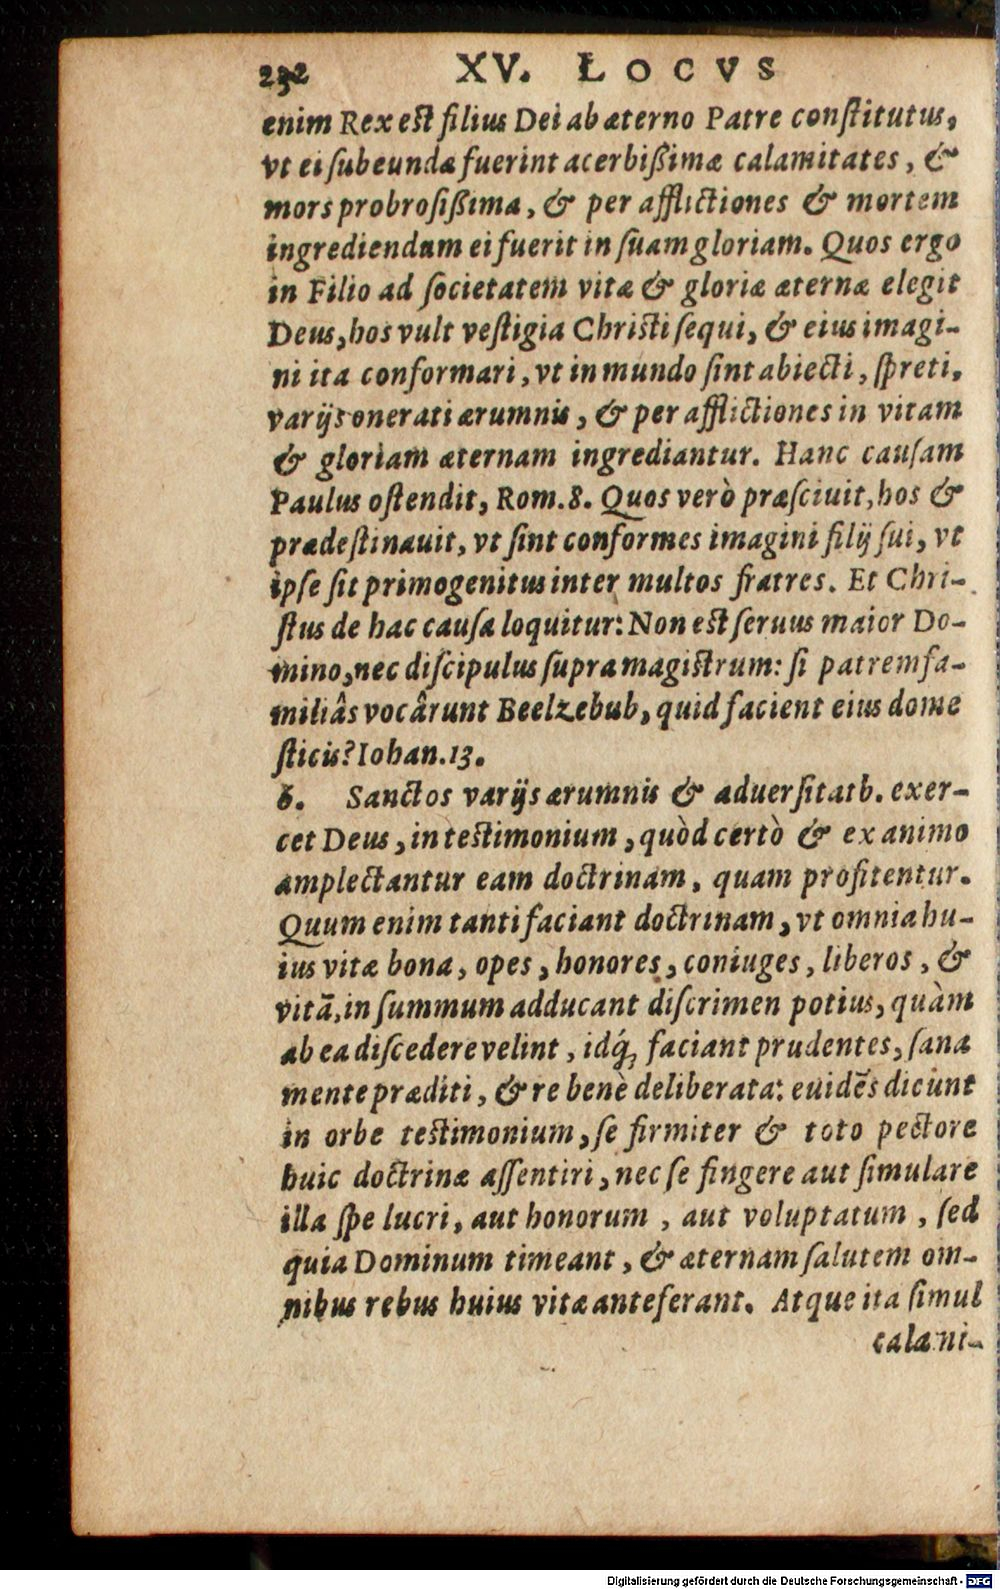 232 XV. LOCVS
enim Rex est filius Dei ab æterno Patre constitutus,
vt ei subeunda fuerint acerbißimæ calamitates, &
mors probrosißima, & per afflictiones & mortem
ingrediendum ei fuerit in suam gloriam. Quos ergo
in Filio ad societatem vitæ & gloriæ æternæ elegit
Deus, hos vult vestigia Christi sequi, & eius imagi-
ni ita conformari, vt in mundo sint abiecti, spreti,
varijs onerati ærumnis, & per afflictiones in vitam
& gloriam æternam ingrediantur. Hanc causam
Paulus ostendit, Rom. 8. Quos verò præsciuit, hos &
prædestinauit, vt sint conformes imagini filij sui, vt
ipse sit primogenitus inter multos fratres. Et Chri-
stus de hac causa loquitur: Non est seruus maior Do-
mino, nec discipulus supra magistrum: si patremfa-
miliâs vocârunt Beelzebub, quid facient eius dome
sticis? Iohan. 13.
6. Sanctos varijs ærumnis & aduersitatb. exer-
cet Deus, in testimonium, quòd certò & ex animo
amplectantur eam doctrinam, quam profitentur.
Quum enim tanti faciant doctrinam, vt omnia hu-
ius vitæ bona, opes, honores, coniuges, liberos, &
vitã, in summum adducant discrimen potius, quàm
ab ea discedere velint, idq́; faciant prudentes, sana
mente præditi, & re benè deliberata: euidẽs dicunt
in orbe testimonium, se firmiter & toto pectore
huic doctrinæ assentiri, nec se fingere aut simulare
illa spe lucri, aut honorum, aut voluptatum, sed
quia Dominum timeant, & æternam salutem om-
nibus rebus huius vitæ anteferant. Atque ita simul
calami-
Digitalisierung gefördert durch die Deutsche Forschungsgemeinschaft - DFG